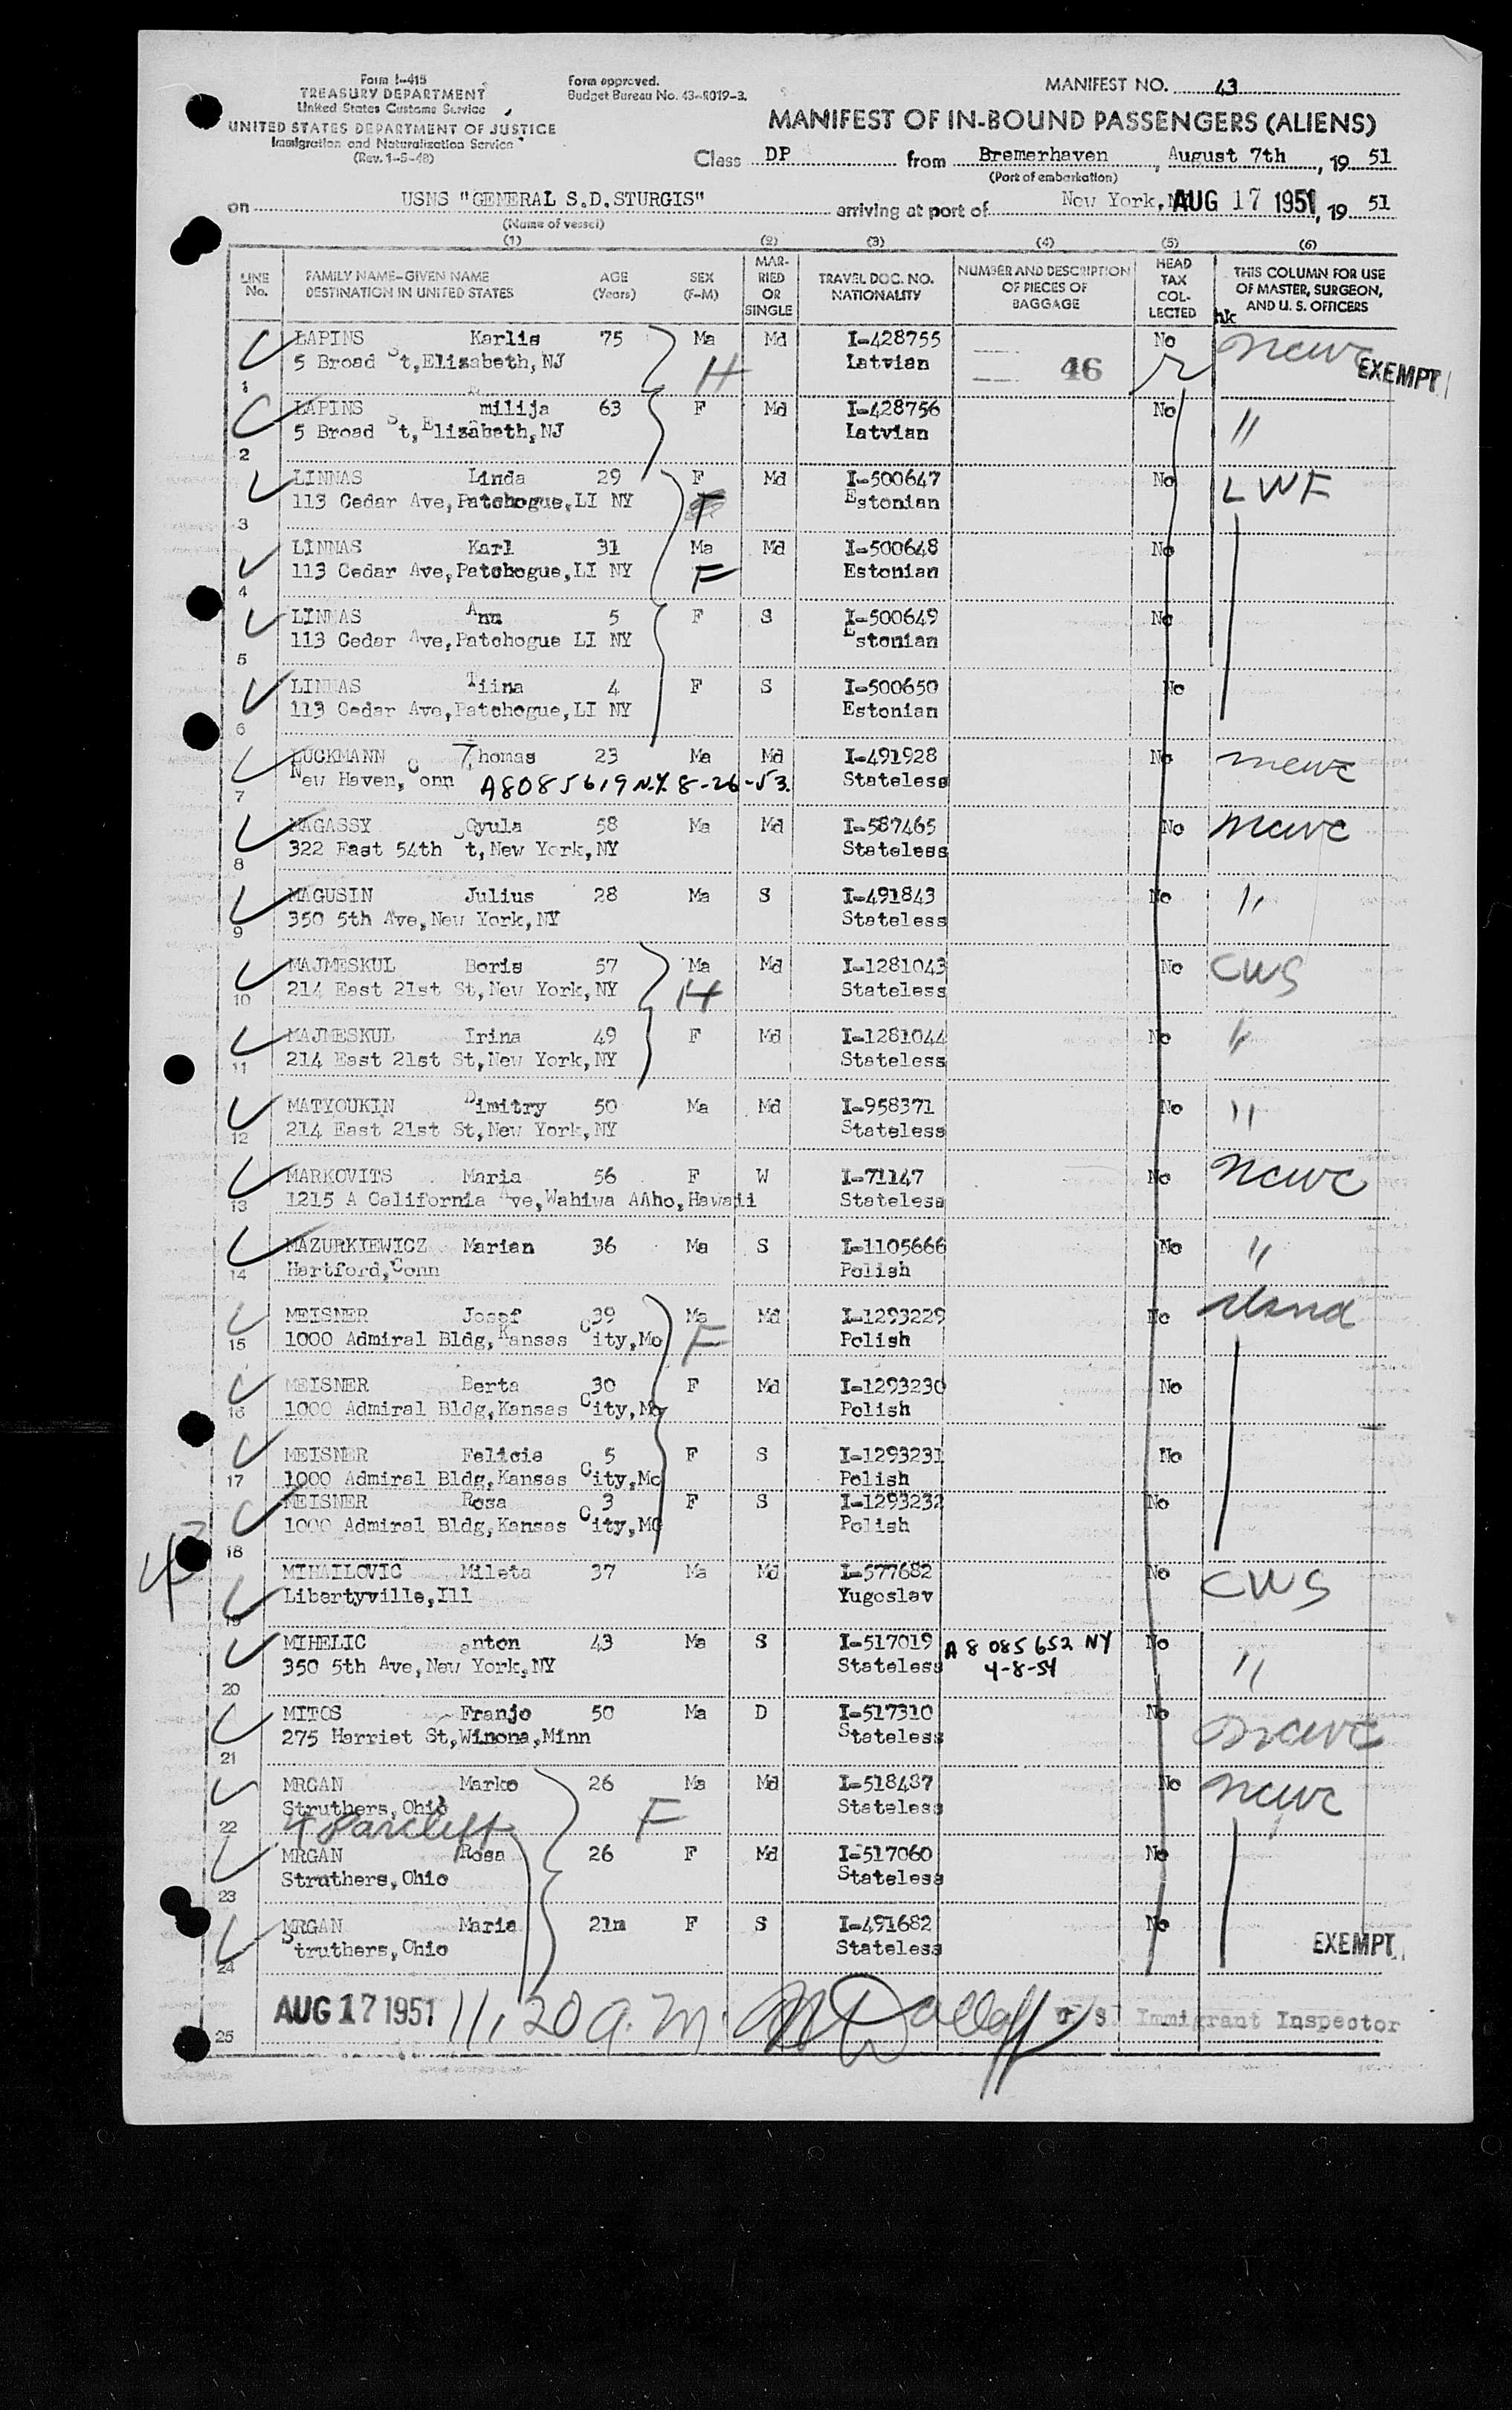 Form I-415
TREASURY DEPARTMENT
United States Customs Service
UNITED STATES DEPARTMENT OF JUSTICE
Immigration and Naturalization Service
(Rev. 1-5-48)
Form approved.
Budget Bureau No. 43-R019-3.
MANIFEST NO. 43
MANIFEST OF IN-BOUND PASSENGERS (ALIENS)
Class DP from Bremerhaven, August 7th, 19 51
(Port of embarkation)
on USNS "GENERAL S.D.STURGIS" arriving at port of New York, AUG 17 1951, 19 51
(Name of vessel)
(1) (2) (3) (4) (5) (6)
LINE No. FAMILY NAME-GIVEN NAME DESTINATION IN UNITED STATES AGE (Years) SEX (F-M) MARRIED OR SINGLE TRAVEL DOC. NO. NATIONALITY NUMBER AND DESCRIPTION OF PIECES OF BAGGAGE HEAD TAX COLLECTED THIS COLUMN FOR USE OF MASTER, SURGEON, AND U. S. OFFICERS
hk
LAPINS Karlis 75 Ma Md I-428755 No ncwc
1 5 Broad St,Elizabeth,NJ H Latvian 46 EXEMPT
LAPINS Emilija 63 F Md I-428756 No "
2 5 Broad St,Elizabeth,NJ Latvian
LINNAS Linda 29 F Md I-500647 No LWF
3 113 Cedar Ave,Patchogue,LI NY Estonian
LINNAS Karl 31 Ma Md I-500648 No
4 113 Cedar Ave,Patchogue,LI NY F Estonian
LINNAS Anu 5 F S I-500649 No
5 113 Cedar Ave,Patchogue LI NY Estonian
LINNAS Tiina 4 F S I-500650 No
6 113 Cedar Ave,Patchogue,LI NY Estonian
LUCKMANN Thomas 23 Ma Md I-491928 No ncwc
7 New Haven,Conn A8085619 N.Y. 8-26-53. Stateless
MAGASSY Gyula 58 Ma Md I-587465 No ncwc
8 322 East 54th St,New York,NY Stateless
MAGUSIN Julius 28 Ma S I-491843 No "
9 350 5th Ave,New York,NY Stateless
MAJMESKUL Boris 57 Ma Md I-1281043 No CWS
10 214 East 21st St,New York,NY H Stateless
MAJMESKUL Irina 49 F Md I-1281044 No "
11 214 East 21st St,New York,NY Stateless
MATYOUKIN Dimitry 50 Ma Md I-958371 No "
12 214 East 21st St,New York,NY Stateless
MARKOVITS Maria 56 F W I-71147 No ncwc
13 1215 A California Ave,Wahiwa AAho,Hawaii Stateless
MAZURKIEWICZ Marian 36 Ma S I-1105666 No "
14 Hartford,Conn Polish
MEISNER Josef 39 Ma Md I-1293229 No
15 1000 Admiral Bldg,Kansas City,Mo F Polish
MEISNER Berta 30 F Md I-1293230 No
16 1000 Admiral Bldg,Kansas City,Mo Polish
MEISNER Felicia 5 F S I-1293231 No
17 1000 Admiral Bldg,Kansas City,Mo Polish
MEISNER Rosa 3 F S I-1293232 No
18 1000 Admiral Bldg,Kansas City,MO Polish
MIHAILOVIC Mileta 37 Ma Md I-577682 No CWS
19 Libertyville,Ill Yugoslav
MIHELIC anton 43 Ma S I-517019 A 8 085 652 NY No "
20 350 5th Ave,New York,NY Stateless 4-8-54
MITOS Franjo 50 Ma D I-517310 No ncwc
21 275 Harriet St,Winona,Minn Stateless
MRGAN Marko 26 Ma Md I-518487 No ncwc
22 Struthers,Ohio F Stateless
MRGAN Rosa 26 F Md I-517060 No
23 Struthers,Ohio Stateless
MRGAN Maria 21m F S I-491682 No
24 Struthers,Ohio Stateless EXEMPT
25 AUG 17 1951 11:20 a.m. U S. Immigrant Inspector